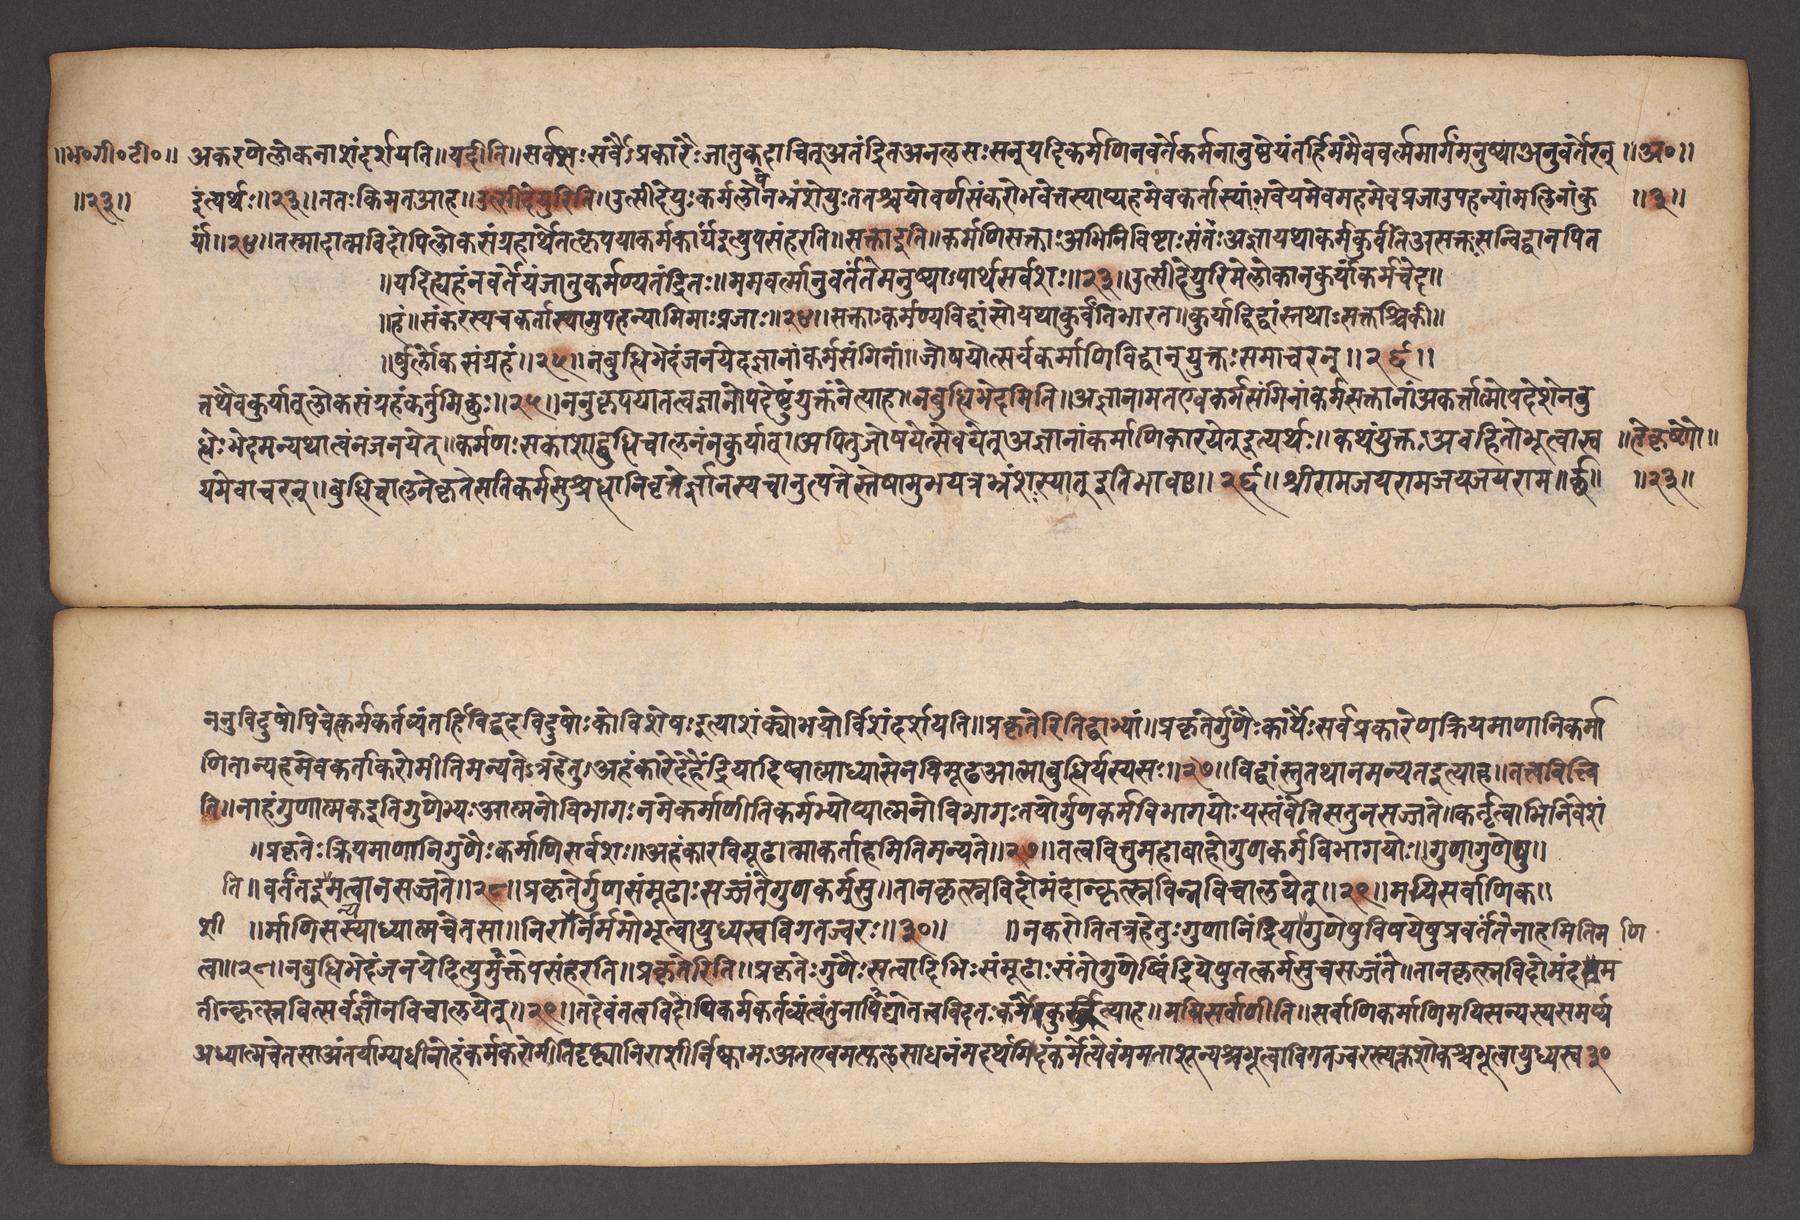 ॥भ॰गी॰टी॰॥ अकरणेलोकनाशंदर्शयति॥यदीति॥सर्वशःसर्वैःप्रकारैःजातुकदाचित्अतंद्रितअनलसःसन्यदिकर्मणिनवर्तेकर्मनानुष्ठेयंतर्हिममैववर्त्ममार्गंमनुष्याअनुवर्तेरन् ॥अ॰॥
॥२३॥ इत्यर्थः॥२३॥ततःकिमतआह॥उत्सीदेयुरिति॥उत्सीदेयुःकर्मलोपेनभ्रंशेयुःततश्चयोवर्णसंकरोभवेत्तस्याप्यहमेवकर्तास्यांभवेयमेवमहमेवप्रजाउपहन्यांमलिनांकु ॥३॥
र्यां॥२४॥तस्मादात्मविदोपिलोकसंग्रहार्थंतत्कृपयाकर्मकार्यमित्युपसंहरति॥सक्ताइति॥कर्मणिसक्ताःअभिनिविष्टाःसंतःअज्ञायथाकर्मकुर्वंतिअसक्तःसन्विद्वानपित
॥यदिह्यहंनवर्तेयंजातुकर्मण्यतंद्रितः॥ममवर्त्मानुवर्तंतेमनुष्याःपार्थसर्वशः॥२३॥उत्सीदेयुरिमेलोकानकुर्यांकर्मचेद॥
॥हं॥संकरस्यचकर्तास्यामुपहन्यामिमाःप्रजाः॥२४॥सक्ताःकर्मण्यविद्वांसोयथाकुर्वंतिभारत॥कुर्याद्विद्वांस्तथाःसक्तश्चिकी॥
॥र्षुर्लोकसंग्रहं॥२५॥नबुद्धिभेदंजनयेदज्ञानांकर्मसंगिनां॥जोषयेत्सर्वकर्माणिविद्वान्युक्तःसमाचरन्॥२६॥
तथैवकुर्यात्लोकसंग्रहंकर्तुमिच्छुः॥२५॥ननुकृपयातत्वज्ञानोपदेष्टुंयुक्तंनेत्याह॥नबुद्धिभेदमिति॥अज्ञानामतएवकर्मसंगिनांकर्मसक्तानांअकर्त्तात्मोपदेशेनबु
द्धेःभेदमन्यथात्वंनजनयेत्॥कर्मणःसकाशाद्बुद्धिचालनंनकुर्यात्॥अपितुजोषयेत्सेवयेत्अज्ञानांकर्माणिकारयेत्इत्यर्थः॥कथंयुक्तःअवहितोभूत्वास्व ॥लेकृष्णो॥
यमेवाचरन्॥बुद्धिचालनेकृतेसतिकर्मसुश्रद्धानिवृत्तेर्ज्ञानस्यचानुत्पत्तेस्तेषामुभयत्रभ्रंशःस्यात्इतिभावः॥२६॥श्रीरामजयरामजयजयराम॥छ॥ ॥२३॥
ननुविदुषोपिचेत्कर्मकर्तव्यंतर्हिविद्वदविदुषोःकोविशेषःइत्याशंक्योभयोर्विशंदर्शयति॥प्रकृतेरितिद्वाभ्यां॥प्रकृतेर्गुणैःकार्यैःसर्वप्रकारेणक्रियमाणानिकर्मा
णितान्यहमेवकर्ताकरोमीतिमन्यतेऽत्रहेतुःअहंकारेदेहेंद्रियादिष्वात्माध्यासेनविमूढआत्माबुद्धिर्यस्यसः॥२७॥विद्वांस्तुतथानमन्यतइत्याह॥तत्ववित्त्वि
ति॥नाहंगुणात्मकइतिगुणेभ्यःआत्मनोविभागःनमेकर्माणीतिकर्मभ्योप्यात्मनोविभागःतयोर्गुणकर्मविभागयोःयस्त्वंवेत्तिसतुनसज्जते॥कर्तृत्वाभिनिवेशं
॥प्रकृतेःक्रियमाणानिगुणैःकर्माणिसर्वशः॥अहंकारविमूढात्माकर्ताहमितिमन्यते॥२७॥तत्ववित्तुमहाबाहोगुणकर्मविभागयोः॥गुणागुणेषु॥
ति॥वर्तंतइमत्वानसज्जते॥२८॥प्रकृतेर्गुणसंमूढाःसज्जंतेगुणकर्मसु॥तानकृत्स्नविदोमंदान्कृत्स्नविन्नविचालयेत्॥२९॥मयिसर्वाणिक॥
शी ॥र्माणिसंन्यस्याध्यात्मचेतसा॥निरार्निर्ममोभूत्वायुध्यस्वविगतज्वरः॥३०॥ ॥नकरोतितत्रहेतुःगुणानिंद्रियागुणेषुविषयेषुप्रवर्तंतेनाहमितिम णि
त्वा॥२८॥नबुद्धिभेदंजनयेदित्युमुक्तंपसंहरति॥प्रकृतेरिति॥प्रकृतेःगुणैःसत्वादिभिःसंमूढाःसंतोगुणेष्विंद्रियेषुतत्कर्मसुचसज्जंते॥तानकृत्स्नविदोमंदम
तीन्कृत्स्नवित्सर्वज्ञोनविचालयेत्॥२९॥तदेवंतत्वविदोपिकर्मकर्तव्यंत्वंतुनापिद्यतत्वविदतःकर्मैवकुर्वित्याह॥मयिसर्वाणीति॥सर्वाणिकर्माणिमयिसन्यस्यसमर्प्य
अध्यात्मचेतसाअंतर्याम्यधीनोहंकर्मकरोमीतिदृष्ट्यानिराशीर्निष्कामःअतएवमत्फलसाधनंमदर्थमिदंकर्मेत्येवंममताशून्यश्चभूत्वाविगतज्वरस्त्यक्तशोकश्चभूत्वायुध्यस्व३०